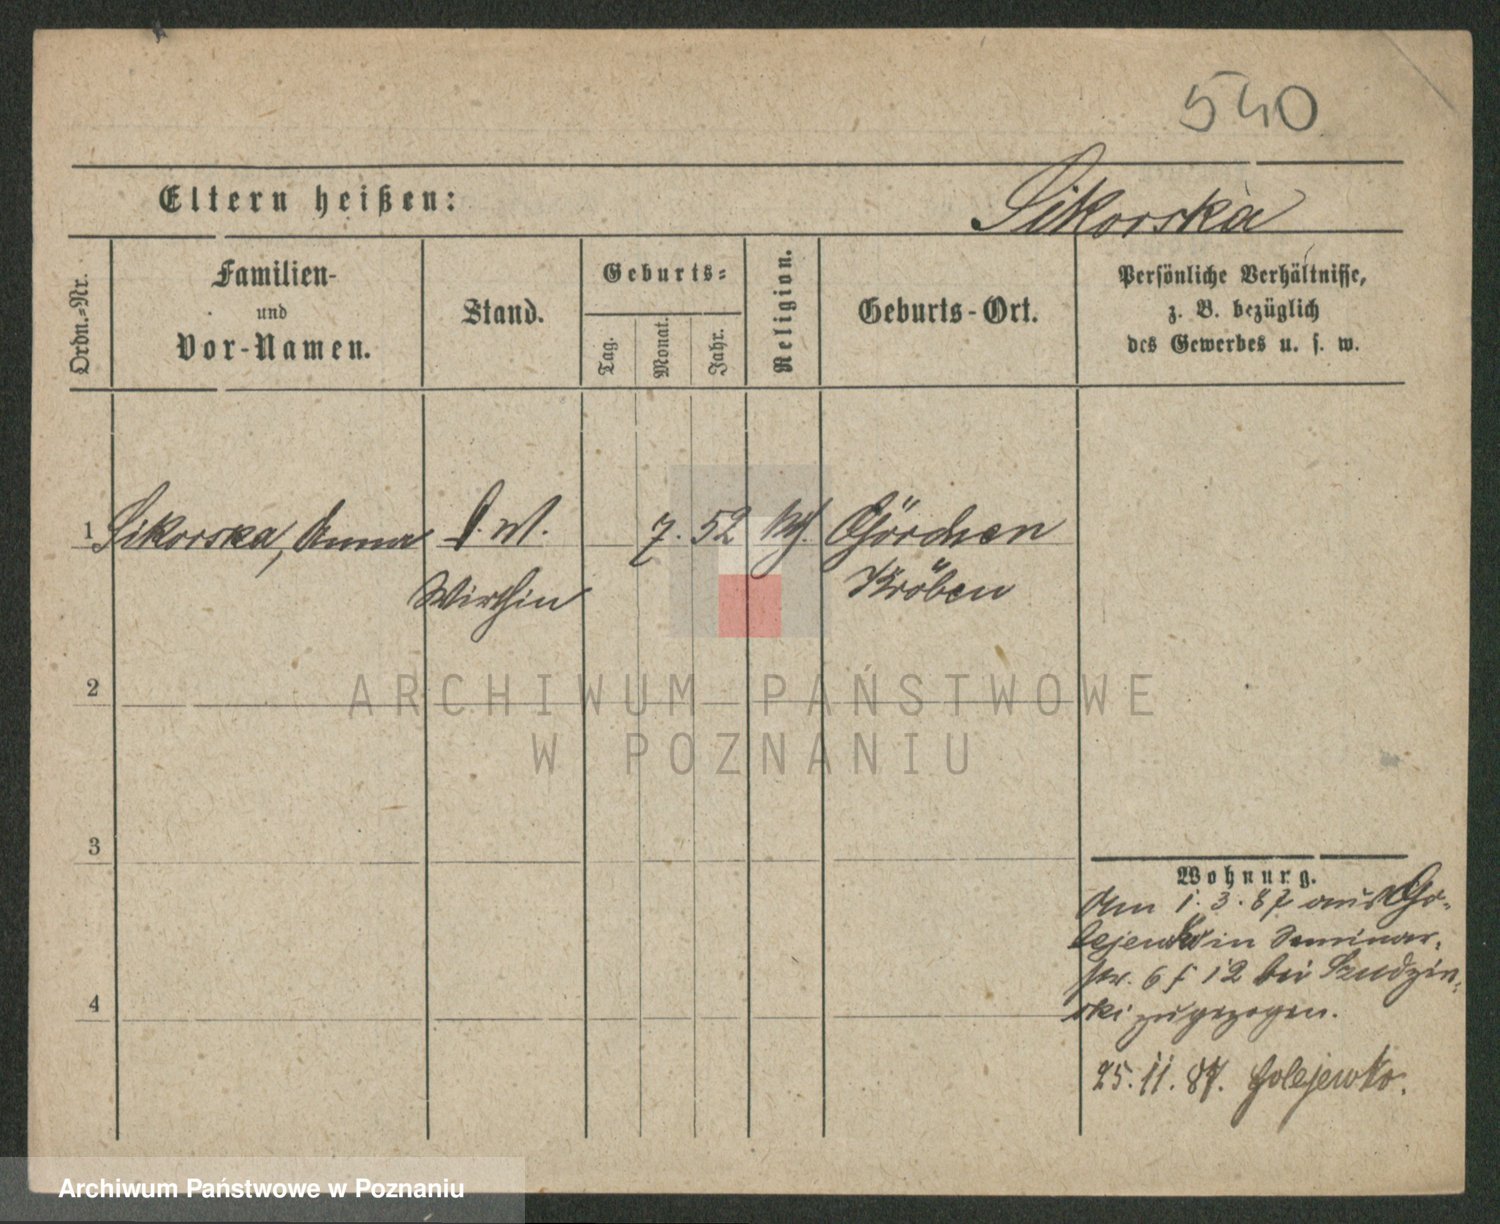 540
Eltern heißen:
Sikorska
Ordn.-Nr.
Familien-
und
Vor-Namen.
Stand.
Geburts-
Tag.
Monat.
Jahr.
Religion.
Geburts-Ort.
Persönliche Verhältnisse,
z. B. bezüglich
des Gewerbes u. s. w.
1 Sikorska, Anna
Wirthin
7. 52
Görchen
Kröben
2
3
4
ARCHIWUM PAŃSTWOWE
W POZNANIU
Wohnung.
Am 1. 3. 87 aus Go-
lejewko in Seminar-
str. 6 f 12 bei Szudzin-
ski zugezogen.
25. 11. 87. Golejewko.
Archiwum Państwowe w Poznaniu